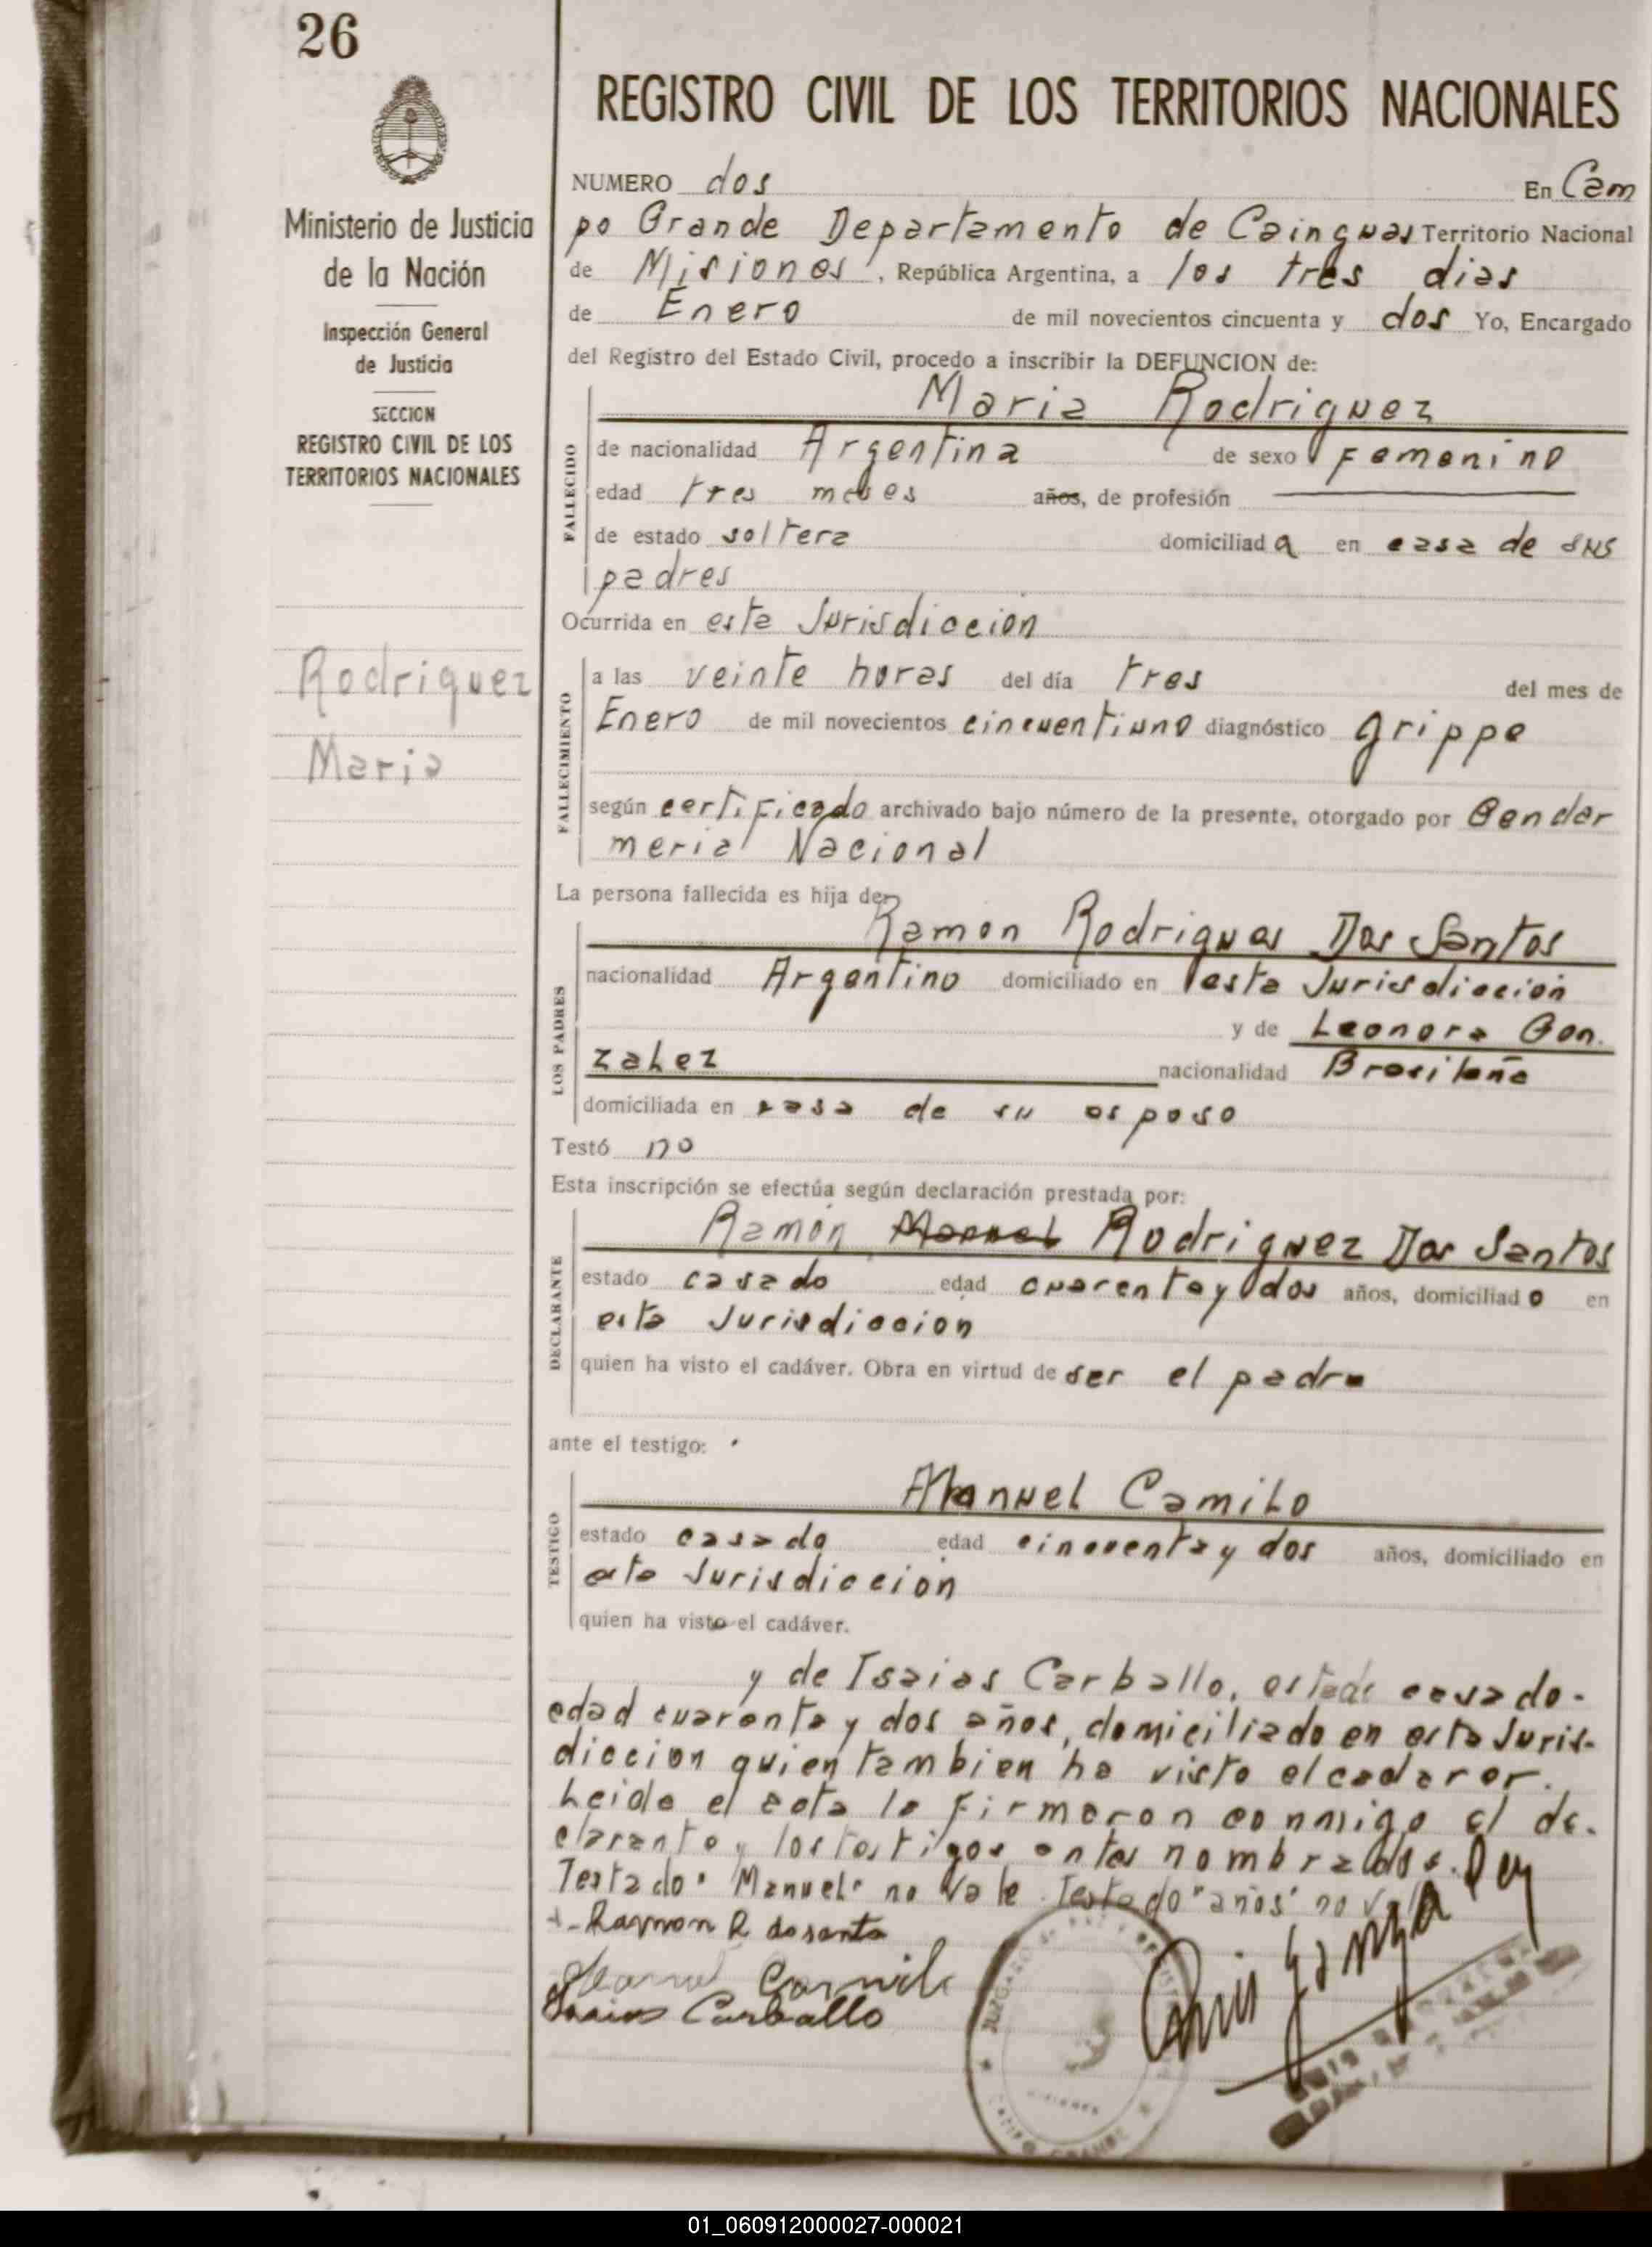 26
REGISTRO CIVIL DE LOS TERRITORIOS NACIONALES
Ministerio de Justicia
de la Nación
Inspección General
de Justicia
SECCION
REGISTRO CIVIL DE LOS
TERRITORIOS NACIONALES
Rodriguez
Maria
NUMERO dos En Cam
po Grande Departamento de Cainguas Territorio Nacional
de Misiones, República Argentina, a los tres dias
de Enero de mil novecientos cincuenta y dos Yo, Encargado
del Registro del Estado Civil, procedo a inscribir la DEFUNCION de:
Maria Rodriguez
FALLECIDO
de nacionalidad Argentina de sexo Femenino
edad tres meses años, de profesión
de estado soltera domiciliada en casa de sus
padres
Ocurrida en esta Jurisdiccion
FALLECIMIENTO
a las veinte horas del día tres del mes de
Enero de mil novecientos cincuentiuno diagnóstico grippe
según certificado archivado bajo número de la presente, otorgado por Gendar
meria Nacional
La persona fallecida es hija de:
Ramon Rodrigues Dos Santos
LOS PADRES
nacionalidad Argentino domiciliado en esta Jurisdiccion
y de Leonora Gon.
zalez nacionalidad Brasileña
domiciliada en casa de su esposo
Testó no
Esta inscripción se efectúa según declaración prestada por:
Ramón Manuel Rodriguez Dos Santos
DECLARANTE
estado casado edad cuarenta y dos años, domiciliado en
esta Jurisdiccion
quien ha visto el cadáver. Obra en virtud de ser el padre
ante el testigo:
Manuel Camilo
TESTIGO
estado casado edad cincuenta y dos años, domiciliado en
esta Jurisdiccion
quien ha visto el cadáver.
y de Isaias Carballo, estado casado-
edad cuarenta y dos años, domiciliado en esta Juris-
diccion quien tambien ha visto el cadaver.
Leida el acta la firmaron conmigo el de-
clarante y los testigos antes nombrados. Doy
Testado "Manuel" no vale. Testado "años" no vale
Ramon R dosanto
Manuel Camilo
Isaias Carballo
JUZGADO DE PAZ Y
MISIONES
CAMPO GRANDE
01_060912000027-000021